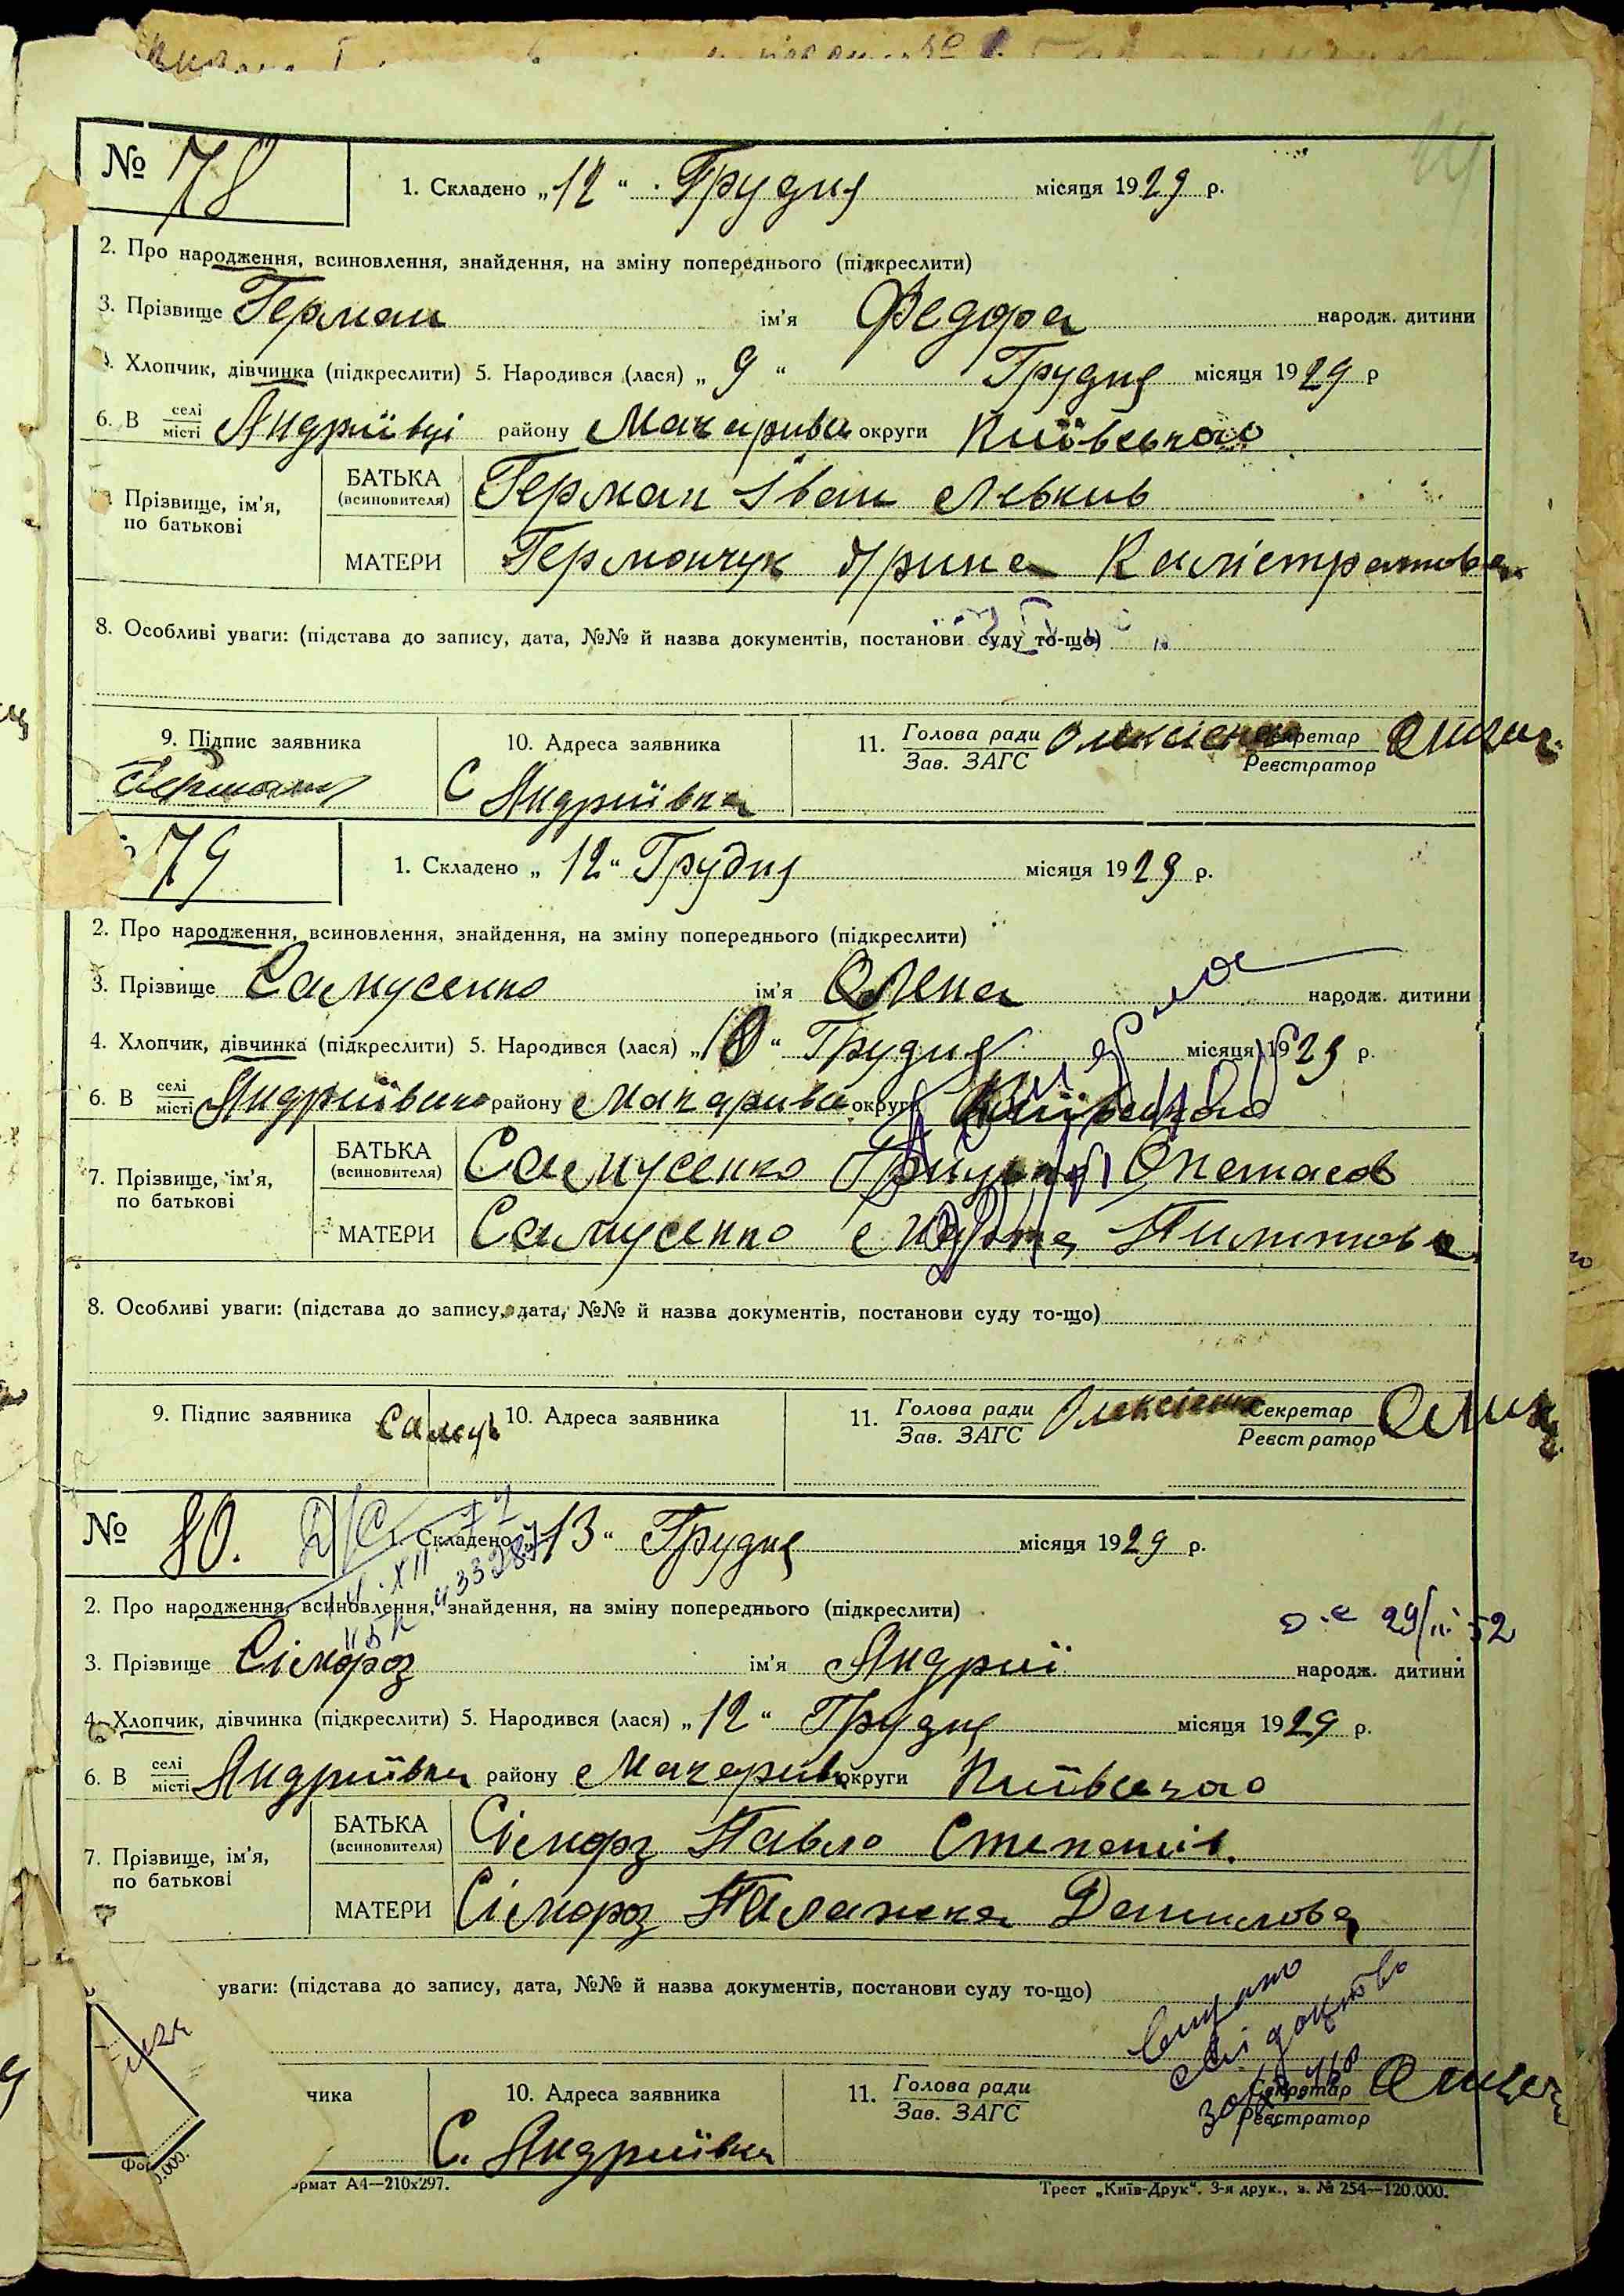 № 78
1. Складено „12“ Грудня місяця 1929 р.
2. Про народження, всиновлення, знайдення, на зміну попереднього (підкреслити)
3. Прізвище Герман ім'я Федора народж. дитини
4. Хлопчик, дівчинка (підкреслити) 5. Народився (лася) „9“ Грудня місяця 1929 р
6. В селі місті Андриївці району Макарива округи Київського
Прізвище, ім'я, по батькові
БАТЬКА (всиновителя) Герман Іван Левкив
МАТЕРИ Гермончук Ярина Калістратова
8. Особливі уваги: (підстава до запису, дата, №№ й назва документів, постанови суду то-що)
9. Підпис заявника Герман
10. Адреса заявника С Андриївка
11. Голова ради Зав. ЗАГС Олексієнко Секретар Реєстратор
79
1. Складено „12“ Грудня місяця 1929 р.
2. Про народження, всиновлення, знайдення, на зміну попереднього (підкреслити)
3. Прізвище Самусенко ім'я Олена народж. дитини
4. Хлопчик, дівчинка (підкреслити) 5. Народився (лася) „10“ Грудня місяця 1929 р.
6. В селі місті району Макарива округи Київського
7. Прізвище, ім'я, по батькові
БАТЬКА (всиновителя) Самусенко Опанасов
МАТЕРИ Самусенко
8. Особливі уваги: (підстава до запису, дата, №№ й назва документів, постанови суду то-що)
9. Підпис заявника
10. Адреса заявника
11. Голова ради Зав. ЗАГС Олексієнко Секретар Реєстратор
№ 80.
1. Складено „13“ Грудня місяця 1929 р.
2. Про народження, всиновлення, знайдення, на зміну попереднього (підкреслити)
29/II 52
3. Прізвище Сімороз ім'я Андрій народж. дитини
4. Хлопчик, дівчинка (підкреслити) 5. Народився (лася) „12“ Грудня місяця 1929 р.
6. В селі місті Андриївка району округи
7. Прізвище, ім'я, по батькові
БАТЬКА (всиновителя) Павло Степанів.
МАТЕРИ Сімороз Палажка Данилова
уваги: (підстава до запису, дата, №№ й назва документів, постанови суду то-що)
свідоцтво
чика
10. Адреса заявника С. Андриївка
11. Голова ради Зав. ЗАГС Секретар Реєстратор
рмат А4—210х297.
Трест „Київ-Друк“. 3-я друк., з. № 254—120.000.